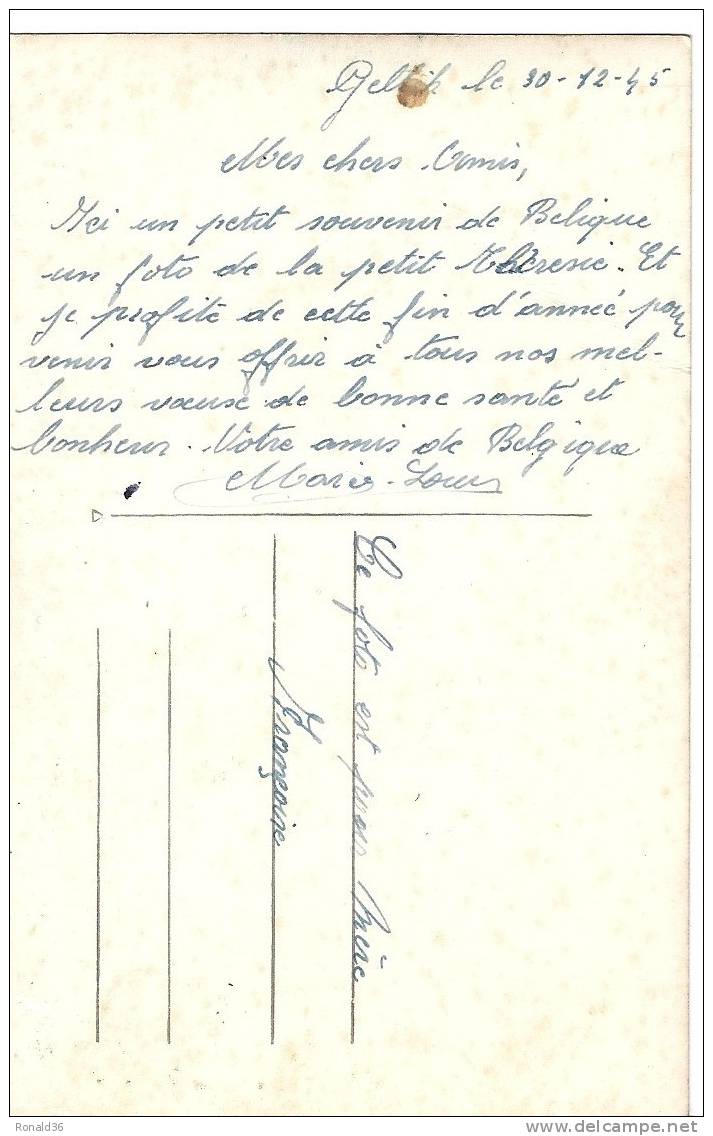 Gellik le 30-12-45
Mes chers Amis,
Ici un petit souvenir de Belique
un foto de la petit Thèresie. Et
je profite de cette fin d'anneé pour
venir vous offrir à tous nos mel-
leurs vœuse de bonne santé et
bonheur. Votre amis de Belgique
Marie-Louis
Ce foto est pour
Françoise
Ronald36
www.delcampe.net